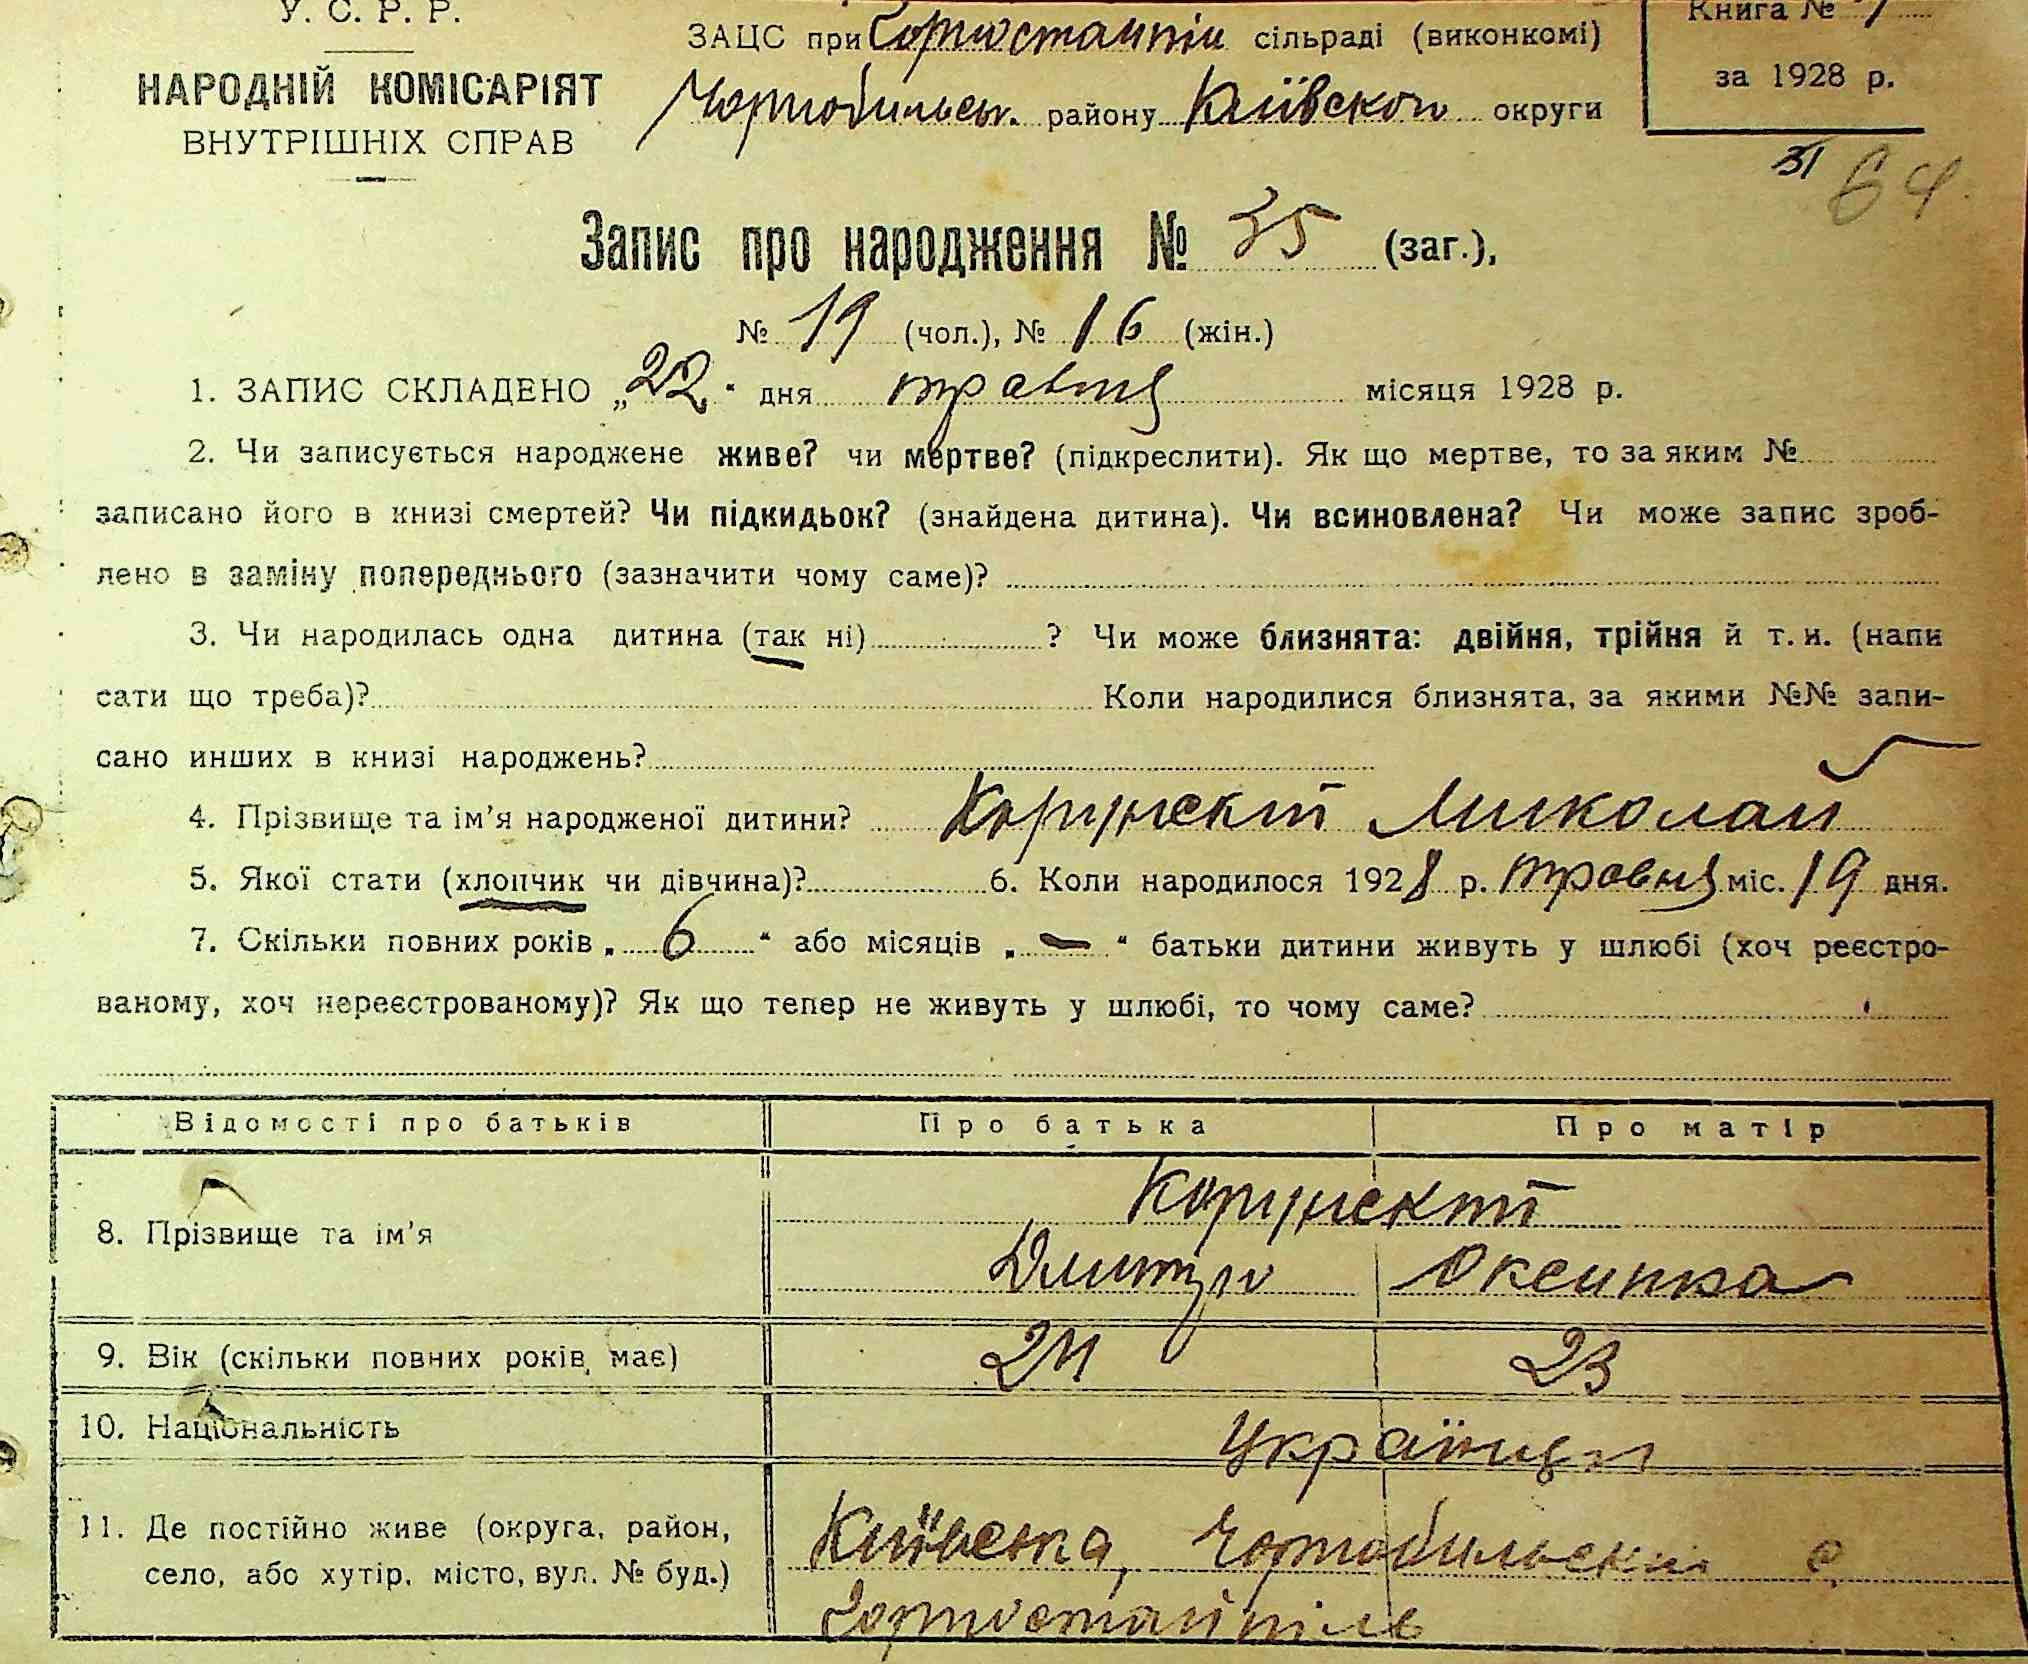 У. С. Р. Р.
НАРОДНІЙ КОМІСАРІЯТ
ВНУТРІШНІХ СПРАВ
ЗАЦС при Горностайпіл сільраді (виконкомі)
Чорнобильськ. району Київсокои округи
Книга №
за 1928 р.
31 64
Запис про народження № 35 (заг.),
№ 19 (чол.), № 16 (жін.)
1. ЗАПИС СКЛАДЕНО „22“ дня травня місяця 1928 р.
2. Чи записується народжене живе? чи мертве? (підкреслити). Як що мертве, то за яким №
записано його в книзі смертей? Чи підкидьок? (знайдена дитина). Чи всиновлена? Чи може запис зроб-
лено в заміну попереднього (зазначити чому саме)?
3. Чи народилась одна дитина (так ні) ? Чи може близнята: двійня, трійня й т. и. (напи
сати що треба)? Коли народилися близнята, за якими №№ запи-
сано инших в книзі народжень?
4. Прізвище та ім'я народженої дитини? Миколай
5. Якої стати (хлопчик чи дівчина)? 6. Коли народилося 1928 р. травня міс. 19 дня.
7. Скільки повних років „6“ або місяців „—“ батьки дитини живуть у шлюбі (хоч реєстро-
ваному, хоч нереєстрованому)? Як що тепер не живуть у шлюбі, то чому саме?
Відомості про батьків Про батька Про матір
8. Прізвище та ім'я
Дмитро Оксинка
9. Вік (скільки повних років має) 24 23
10. Національність Українці
11. Де постійно живе (округа, район,
село, або хутір, місто, вул. № буд.)
Київська, Чорнобильский с.
Горностайпіль